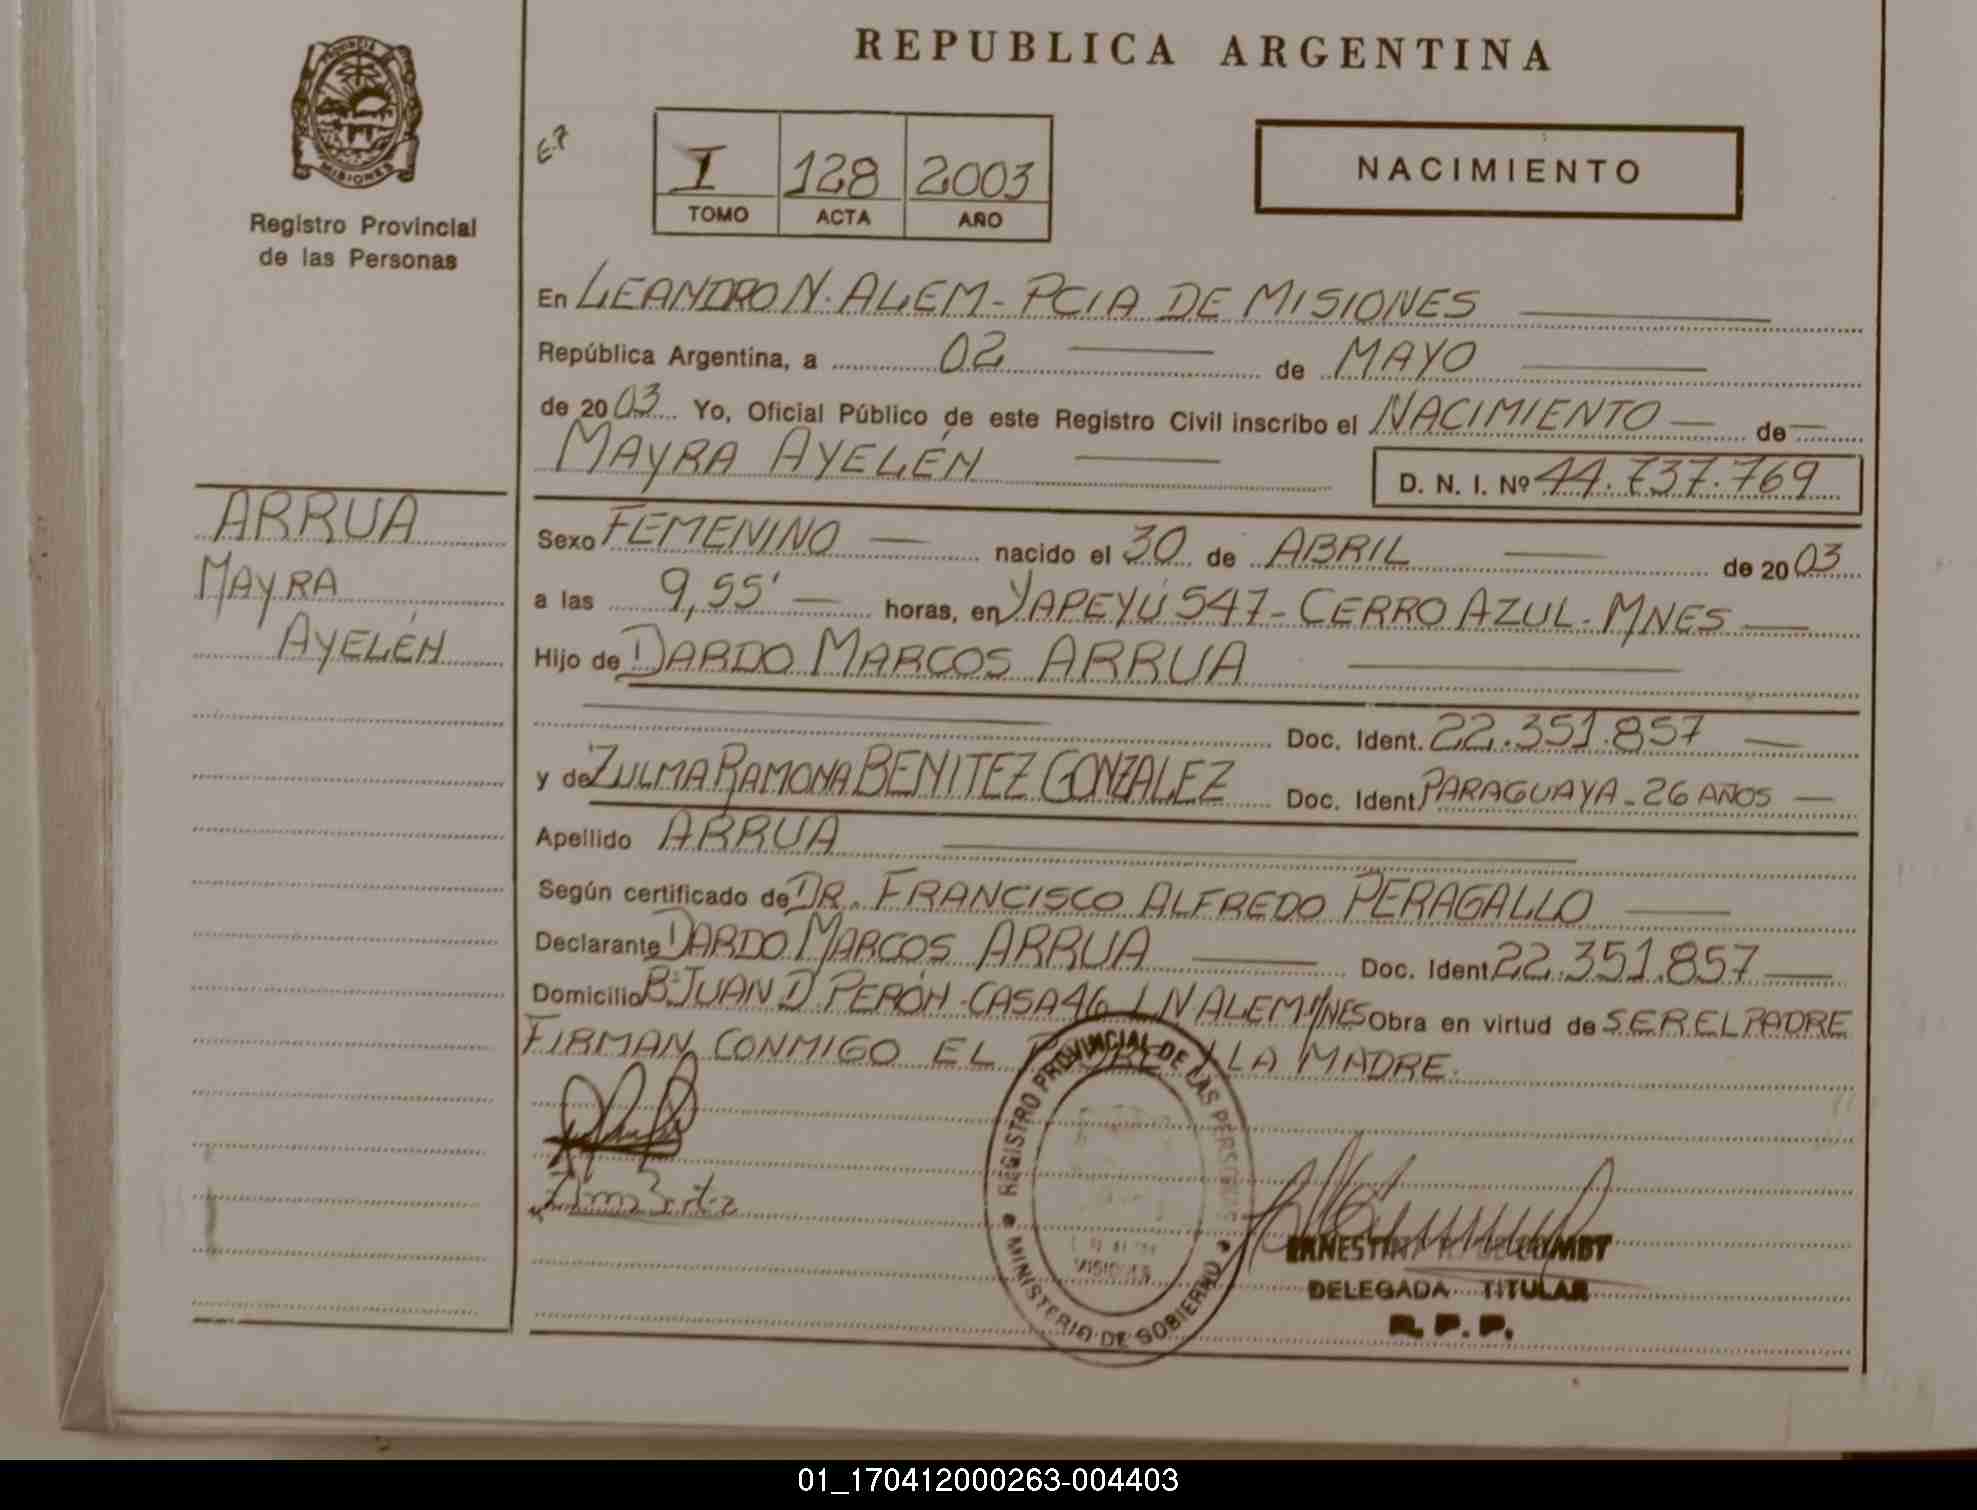 REPUBLICA ARGENTINA
PROVINCIA
MISIONES
Registro Provincial
de las Personas
I 128 2003
TOMO ACTA AÑO
NACIMIENTO
En LEANDRO N. ALEM - PCIA DE MISIONES
República Argentina, a 02 de MAYO
de 2003 Yo, Oficial Público de este Registro Civil inscribo el NACIMIENTO de
MAYRA AYELÉN
D. N. I. Nº 44.737.769
ARRUA
MAYRA
AYELÉN
Sexo FEMENINO nacido el 30 de ABRIL de 2003
a las 9,55' horas, en YAPEYÚ 547 - CERRO AZUL - MNES
Hijo de DARDO MARCOS ARRUA
Doc. Ident. 22.351.857
y de ZULMA RAMONA BENITEZ GONZALEZ Doc. Ident. PARAGUAYA - 26 AÑOS
Apellido ARRUA
Según certificado de DR. FRANCISCO ALFREDO PERAGALLO
Declarante DARDO MARCOS ARRUA Doc. Ident. 22.351.857
Domicilio B: JUAN D. PERÓN - CASA 46 LN ALEM MNES Obra en virtud de SER EL PADRE
FIRMAN CONMIGO EL PADRE Y LA MADRE.
REGISTRO PROVINCIAL DE LAS PERSONAS
MINISTERIO DE GOBIERNO
MISIONES
DELEGADA TITULAR
R. P. P.
01_170412000263-004403